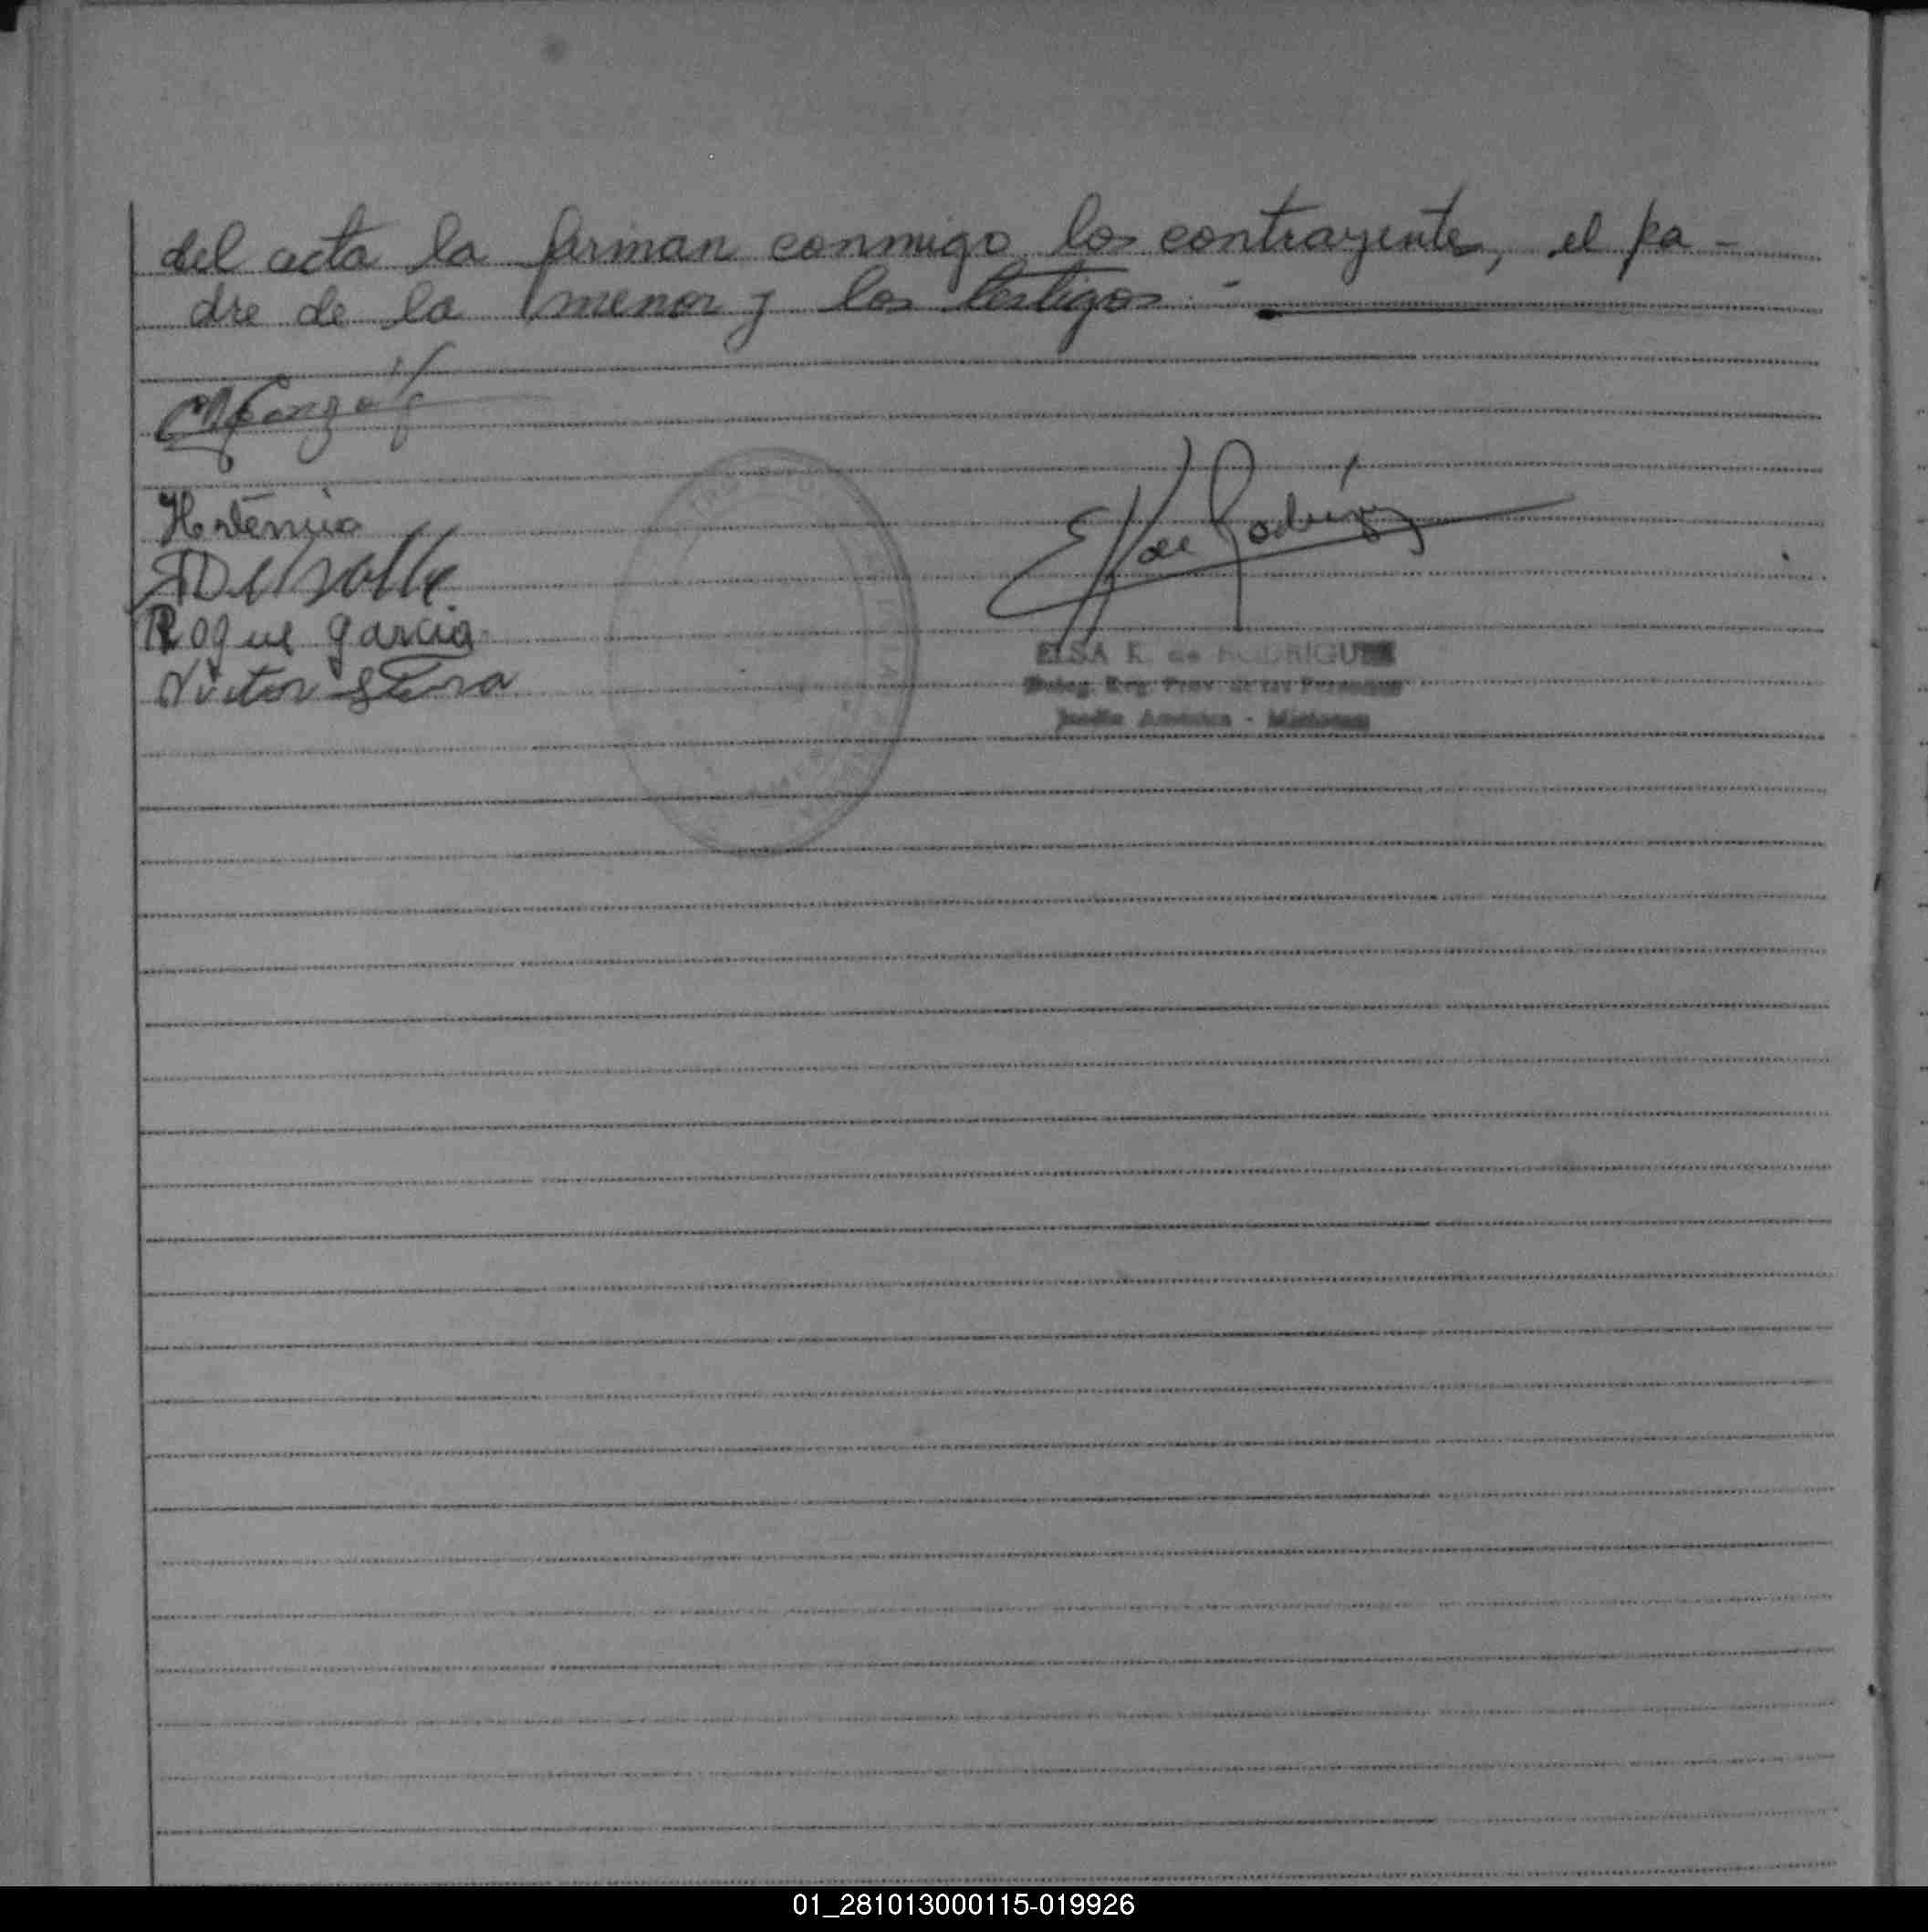 del acta la firman conmigo los contrayentes, el pa-
dre de la menor y los testigos.-
Hortencia
Roque Garcia
Victor
E K de Rodriguez
ELSA K. de RODRIGUEZ
Deleg. Reg. Prov. de las Personas
Jardín América - Misiones
01_281013000115-019926